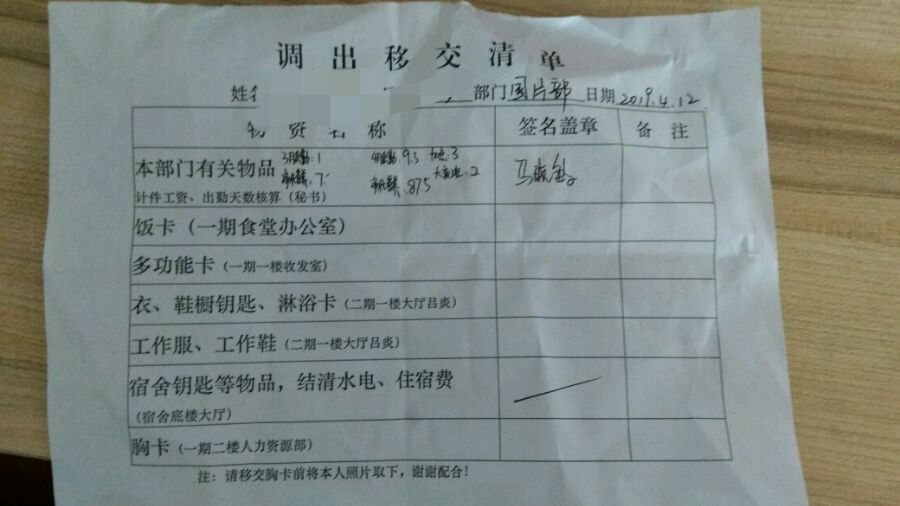 调出移交清单
姓名 部门 图片部 日期 2019.4.12
物资名称 签名盖章 备注
本部门有关物品
计件工资、出勤天数核算（秘书）
饭卡（一期食堂办公室）
多功能卡（一期一楼收发室）
衣、鞋橱钥匙、淋浴卡（二期一楼大厅吕炎）
工作服、工作鞋（二期一楼大厅吕炎）
宿舍钥匙等物品，结清水电、住宿费
（宿舍底楼大厅）
胸卡（一期二楼人力资源部）
注：请移交胸卡前将本人照片取下，谢谢配合！